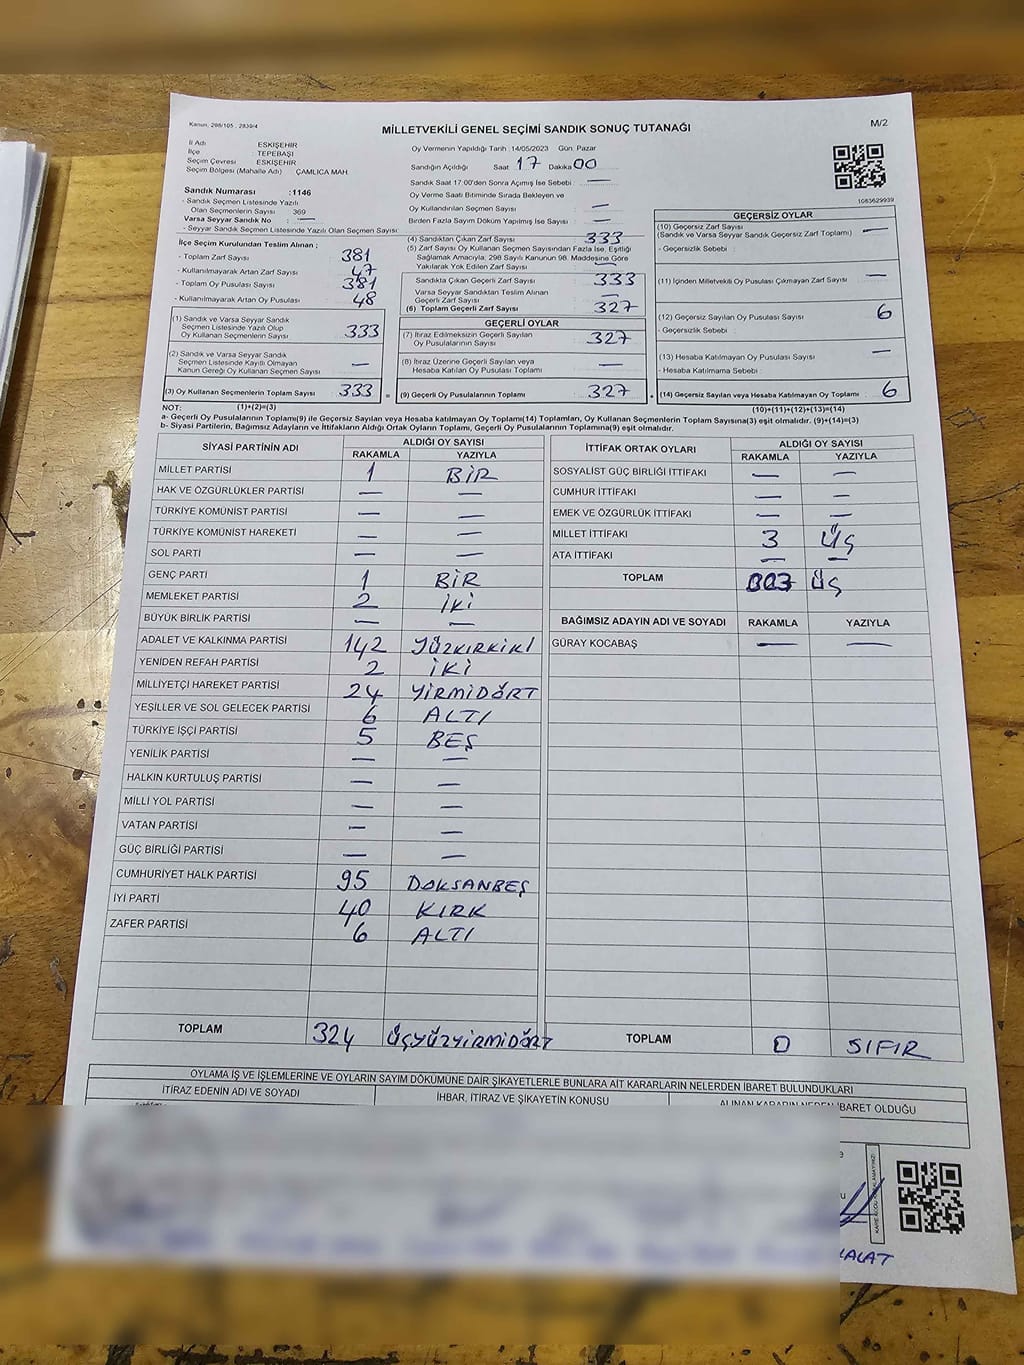 Kanun, 298/105 , 2839/4
MİLLETVEKİLİ GENEL SEÇİMİ SANDIK SONUÇ TUTANAĞI
M/2
İl Adı ESKİŞEHİR
İlçe : TEPEBAŞI
Seçim Çevresi ESKİŞEHİR
Seçim Bölgesi (Mahalle Adı) ÇAMLICA MAH.
Oy Vermenin Yapıldığı Tarih : 14/05/2023 Gün: Pazar
Sandığın Açıldığı Saat 17 Dakika 00
Sandık Saat 17:00'den Sonra Açımış İse Sebebi : —
Oy Verme Saati Bitiminde Sırada Bekleyen ve
Oy Kullandırılan Seçmen Sayısı —
Birden Fazla Sayım Döküm Yapılmış İse Sayısı : —
1083629939
Sandık Numarası : 1146
- Sandık Seçmen Listesinde Yazılı
Olan Seçmenlerin Sayısı 369
Varsa Seyyar Sandık No : —
- Seyyar Sandık Seçmen Listesinde Yazılı Olan Seçmen Sayısı:
İlçe Seçim Kurulundan Teslim Alınan ;
- Toplam Zarf Sayısı 381
- Kullanılmayarak Artan Zarf Sayısı 47
- Toplam Oy Pusulası Sayısı 381
- Kullanılmayarak Artan Oy Pusulası 48
(1) Sandık ve Varsa Seyyar Sandık
Seçmen Listesinde Yazılı Olup
Oy Kullanan Seçmenlerin Sayısı 333
(2) Sandık ve Varsa Seyyar Sandık
Seçmen Listesinde Kayıtlı Olmayan
Kanun Gereği Oy Kullanan Seçmen Sayısı —
(3) Oy Kullanan Seçmenlerin Toplam Sayısı 333 =
(1)+(2)=(3)
(4) Sandıktan Çıkan Zarf Sayısı 333
(5) Zarf Sayısı Oy Kullanan Seçmen Sayısından Fazla İse, Eşitliği
Sağlamak Amacıyla, 298 Sayılı Kanunun 98. Maddesine Göre
Yakılarak Yok Edilen Zarf Sayısı —
Sandıkta Çıkan Geçerli Zarf Sayısı 333
Varsa Seyyar Sandıktan Teslim Alınan
Geçerli Zarf Sayısı —
(6) Toplam Geçerli Zarf Sayısı 327
GEÇERLİ OYLAR
(7) İtiraz Edilmeksizin Geçerli Sayılan
Oy Pusulalarının Sayısı 327
(8) İtiraz Üzerine Geçerli Sayılan veya
Hesaba Katılan Oy Pusulası Toplamı —
(9) Geçerli Oy Pusulalarının Toplamı 327 +
GEÇERSİZ OYLAR
(10) Geçersiz Zarf Sayısı
(Sandık ve Varsa Seyyar Sandık Geçersiz Zarf Toplamı) —
- Geçersizlik Sebebi :
(11) İçinden Milletvekili Oy Pusulası Çıkmayan Zarf Sayısı —
(12) Geçersiz Sayılan Oy Pusulası Sayısı 6
- Geçersizlik Sebebi :
(13) Hesaba Katılmayan Oy Pusulası Sayısı —
- Hesaba Katılmama Sebebi :
(14) Geçersiz Sayılan veya Hesaba Katılmayan Oy Toplamı : 6
(10)+(11)+(12)+(13)=(14)
NOT:
a- Geçerli Oy Pusulalarının Toplamı(9) ile Geçersiz Sayılan veya Hesaba katılmayan Oy Toplamı(14) Toplamları, Oy Kullanan Seçmenlerin Toplam Sayısına(3) eşit olmalıdır. (9)+(14)=(3)
b- Siyasi Partilerin, Bağımsız Adayların ve İttifakların Aldığı Ortak Oyların Toplamı, Geçerli Oy Pusulalarının Toplamına(9) eşit olmalıdır.
SİYASİ PARTİNİN ADI ALDIĞI OY SAYISI
RAKAMLA YAZIYLA
MİLLET PARTİSİ 1 BİR
HAK VE ÖZGÜRLÜKLER PARTİSİ — —
TÜRKİYE KOMÜNİST PARTİSİ — —
TÜRKİYE KOMÜNİST HAREKETİ — —
SOL PARTİ — —
GENÇ PARTİ 1 BİR
MEMLEKET PARTİSİ 2 İKİ
BÜYÜK BİRLİK PARTİSİ — —
ADALET VE KALKINMA PARTİSİ 142 YÜZKIRKİKİ
YENİDEN REFAH PARTİSİ 2 İKİ
MİLLİYETÇİ HAREKET PARTİSİ 24 YİRMİDÖRT
YEŞİLLER VE SOL GELECEK PARTİSİ 6 ALTI
TÜRKİYE İŞÇİ PARTİSİ 5 BEŞ
YENİLİK PARTİSİ — —
HALKIN KURTULUŞ PARTİSİ — —
MİLLİ YOL PARTİSİ — —
VATAN PARTİSİ — —
GÜÇ BİRLİĞİ PARTİSİ — —
CUMHURİYET HALK PARTİSİ 95 DOKSANBEŞ
İYİ PARTİ 40 KIRK
ZAFER PARTİSİ 6 ALTI
TOPLAM 324 ÜÇYÜZYİRMİDÖRT
İTTİFAK ORTAK OYLARI ALDIĞI OY SAYISI
RAKAMLA YAZIYLA
SOSYALİST GÜÇ BİRLİĞİ İTTİFAKI — —
CUMHUR İTTİFAKI — —
EMEK VE ÖZGÜRLÜK İTTİFAKI — —
MİLLET İTTİFAKI 3 ÜÇ
ATA İTTİFAKI — —
TOPLAM 003 ÜÇ
BAĞIMSIZ ADAYIN ADI VE SOYADI RAKAMLA YAZIYLA
GÜRAY KOCABAŞ — —
TOPLAM 0 SIFIR
OYLAMA İŞ VE İŞLEMLERİNE VE OYLARIN SAYIM DÖKÜMÜNE DAİR ŞİKAYETLERLE BUNLARA AİT KARARLARIN NELERDEN İBARET BULUNDUKLARI
İTİRAZ EDENİN ADI VE SOYADI İHBAR, İTİRAZ VE ŞİKAYETİN KONUSU ALINAN KARARIN NEDEN İBARET OLDUĞU